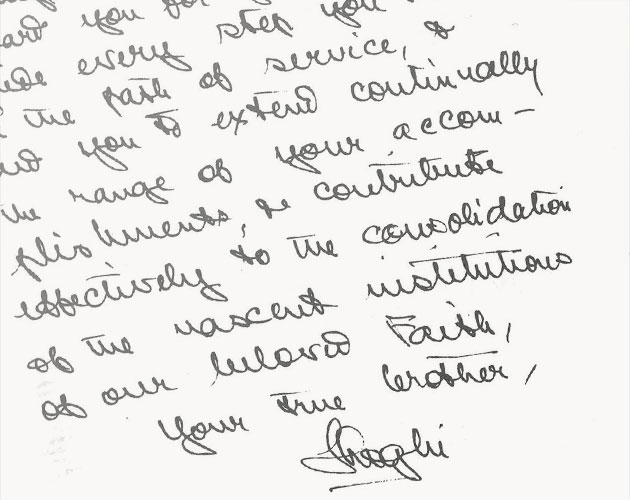 you
every step you
the path of service, &
you to extend continually
the range of your accom-
plishments, & contribute
effectively to the consolidation
of the nascent institutions
of our beloved Faith,
Your true brother,
Shoghi